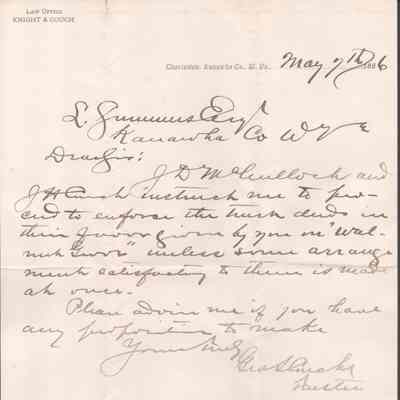 LAW OFFICE
KNIGHT & COUCH
Charleston, Kanawha Co., W. Va., May 7th 1886
L. Summers Esqr
Kanawha Co W Va
Dear Sir:
J D McCulloch and
J H Couch instruct me to pro-
ceed to enforce the trust deeds in
their favor given by you on "Wal-
nut Grove" unless some arrange
ment satisfactory to them is made
at once.
Please advise me if you have
any proposition to make
Yours truly
Geo S Couch
Trustee